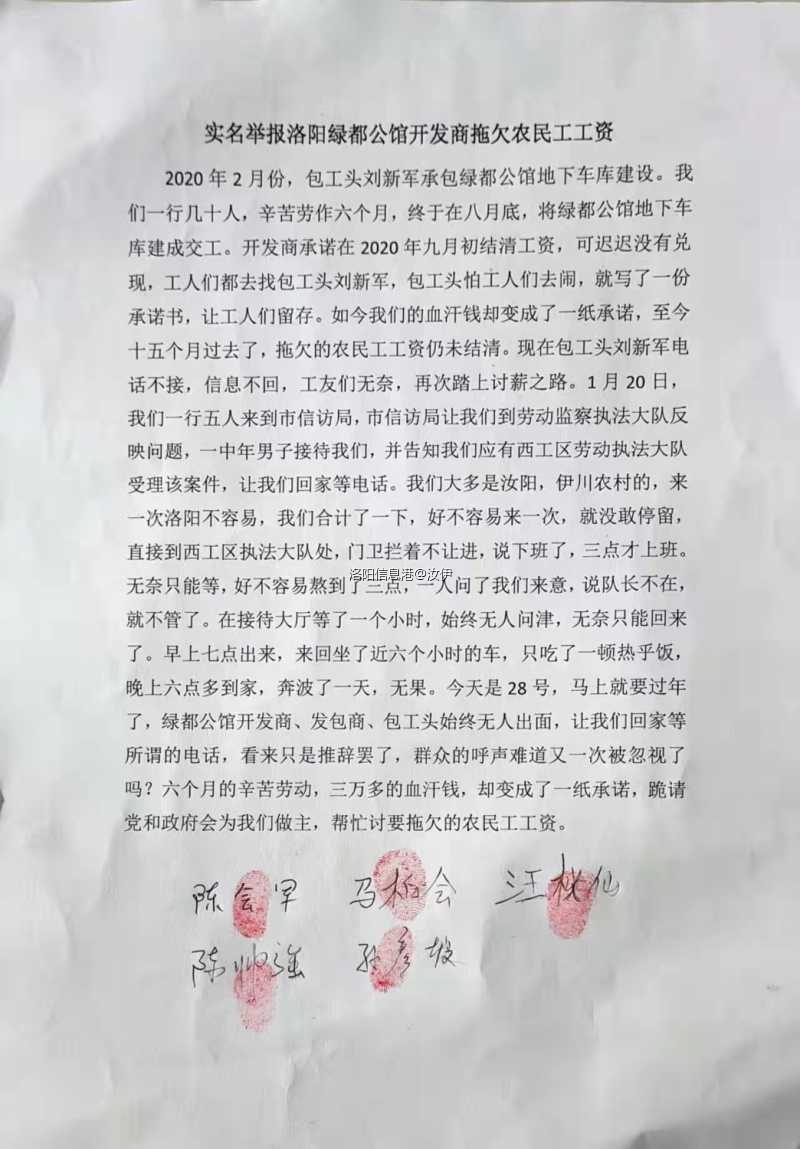 实名举报洛阳绿都公馆开发商拖欠农民工工资
2020 年 2 月份，包工头刘新军承包绿都公馆地下车库建设。我
们一行几十人，辛苦劳作六个月，终于在八月底，将绿都公馆地下车
库建成交工。开发商承诺在 2020 年九月初结清工资，可迟迟没有兑
现，工人们都去找包工头刘新军，包工头怕工人们去闹，就写了一份
承诺书，让工人们留存。如今我们的血汗钱却变成了一纸承诺，至今
十五个月过去了，拖欠的农民工工资仍未结清。现在包工头刘新军电
话不接，信息不回，工友们无奈，再次踏上讨薪之路。1 月 20 日，
我们一行五人来到市信访局，市信访局让我们到劳动监察执法大队反
映问题，一中年男子接待我们，并告知我们应有西工区劳动执法大队
受理该案件，让我们回家等电话。我们大多是汝阳，伊川农村的，来
一次洛阳不容易，我们合计了一下，好不容易来一次，就没敢停留，
直接到西工区执法大队处，门卫拦着不让进，说下班了，三点才上班。
洛阳信息港@汝伊
无奈只能等，好不容易熬到了三点，一人问了我们来意，说队长不在，
就不管了。在接待大厅等了一个小时，始终无人问津，无奈只能回来
了。早上七点出来，来回坐了近六个小时的车，只吃了一顿热乎饭，
晚上六点多到家，奔波了一天，无果。今天是 28 号，马上就要过年
了，绿都公馆开发商、发包商、包工头始终无人出面，让我们回家等
所谓的电话，看来只是推辞罢了，群众的呼声难道又一次被忽视了
吗？六个月的辛苦劳动，三万多的血汗钱，却变成了一纸承诺，跪请
党和政府会为我们做主，帮忙讨要拖欠的农民工工资。
陈会 马 会 汪 仙
陈帅 孙彦坡